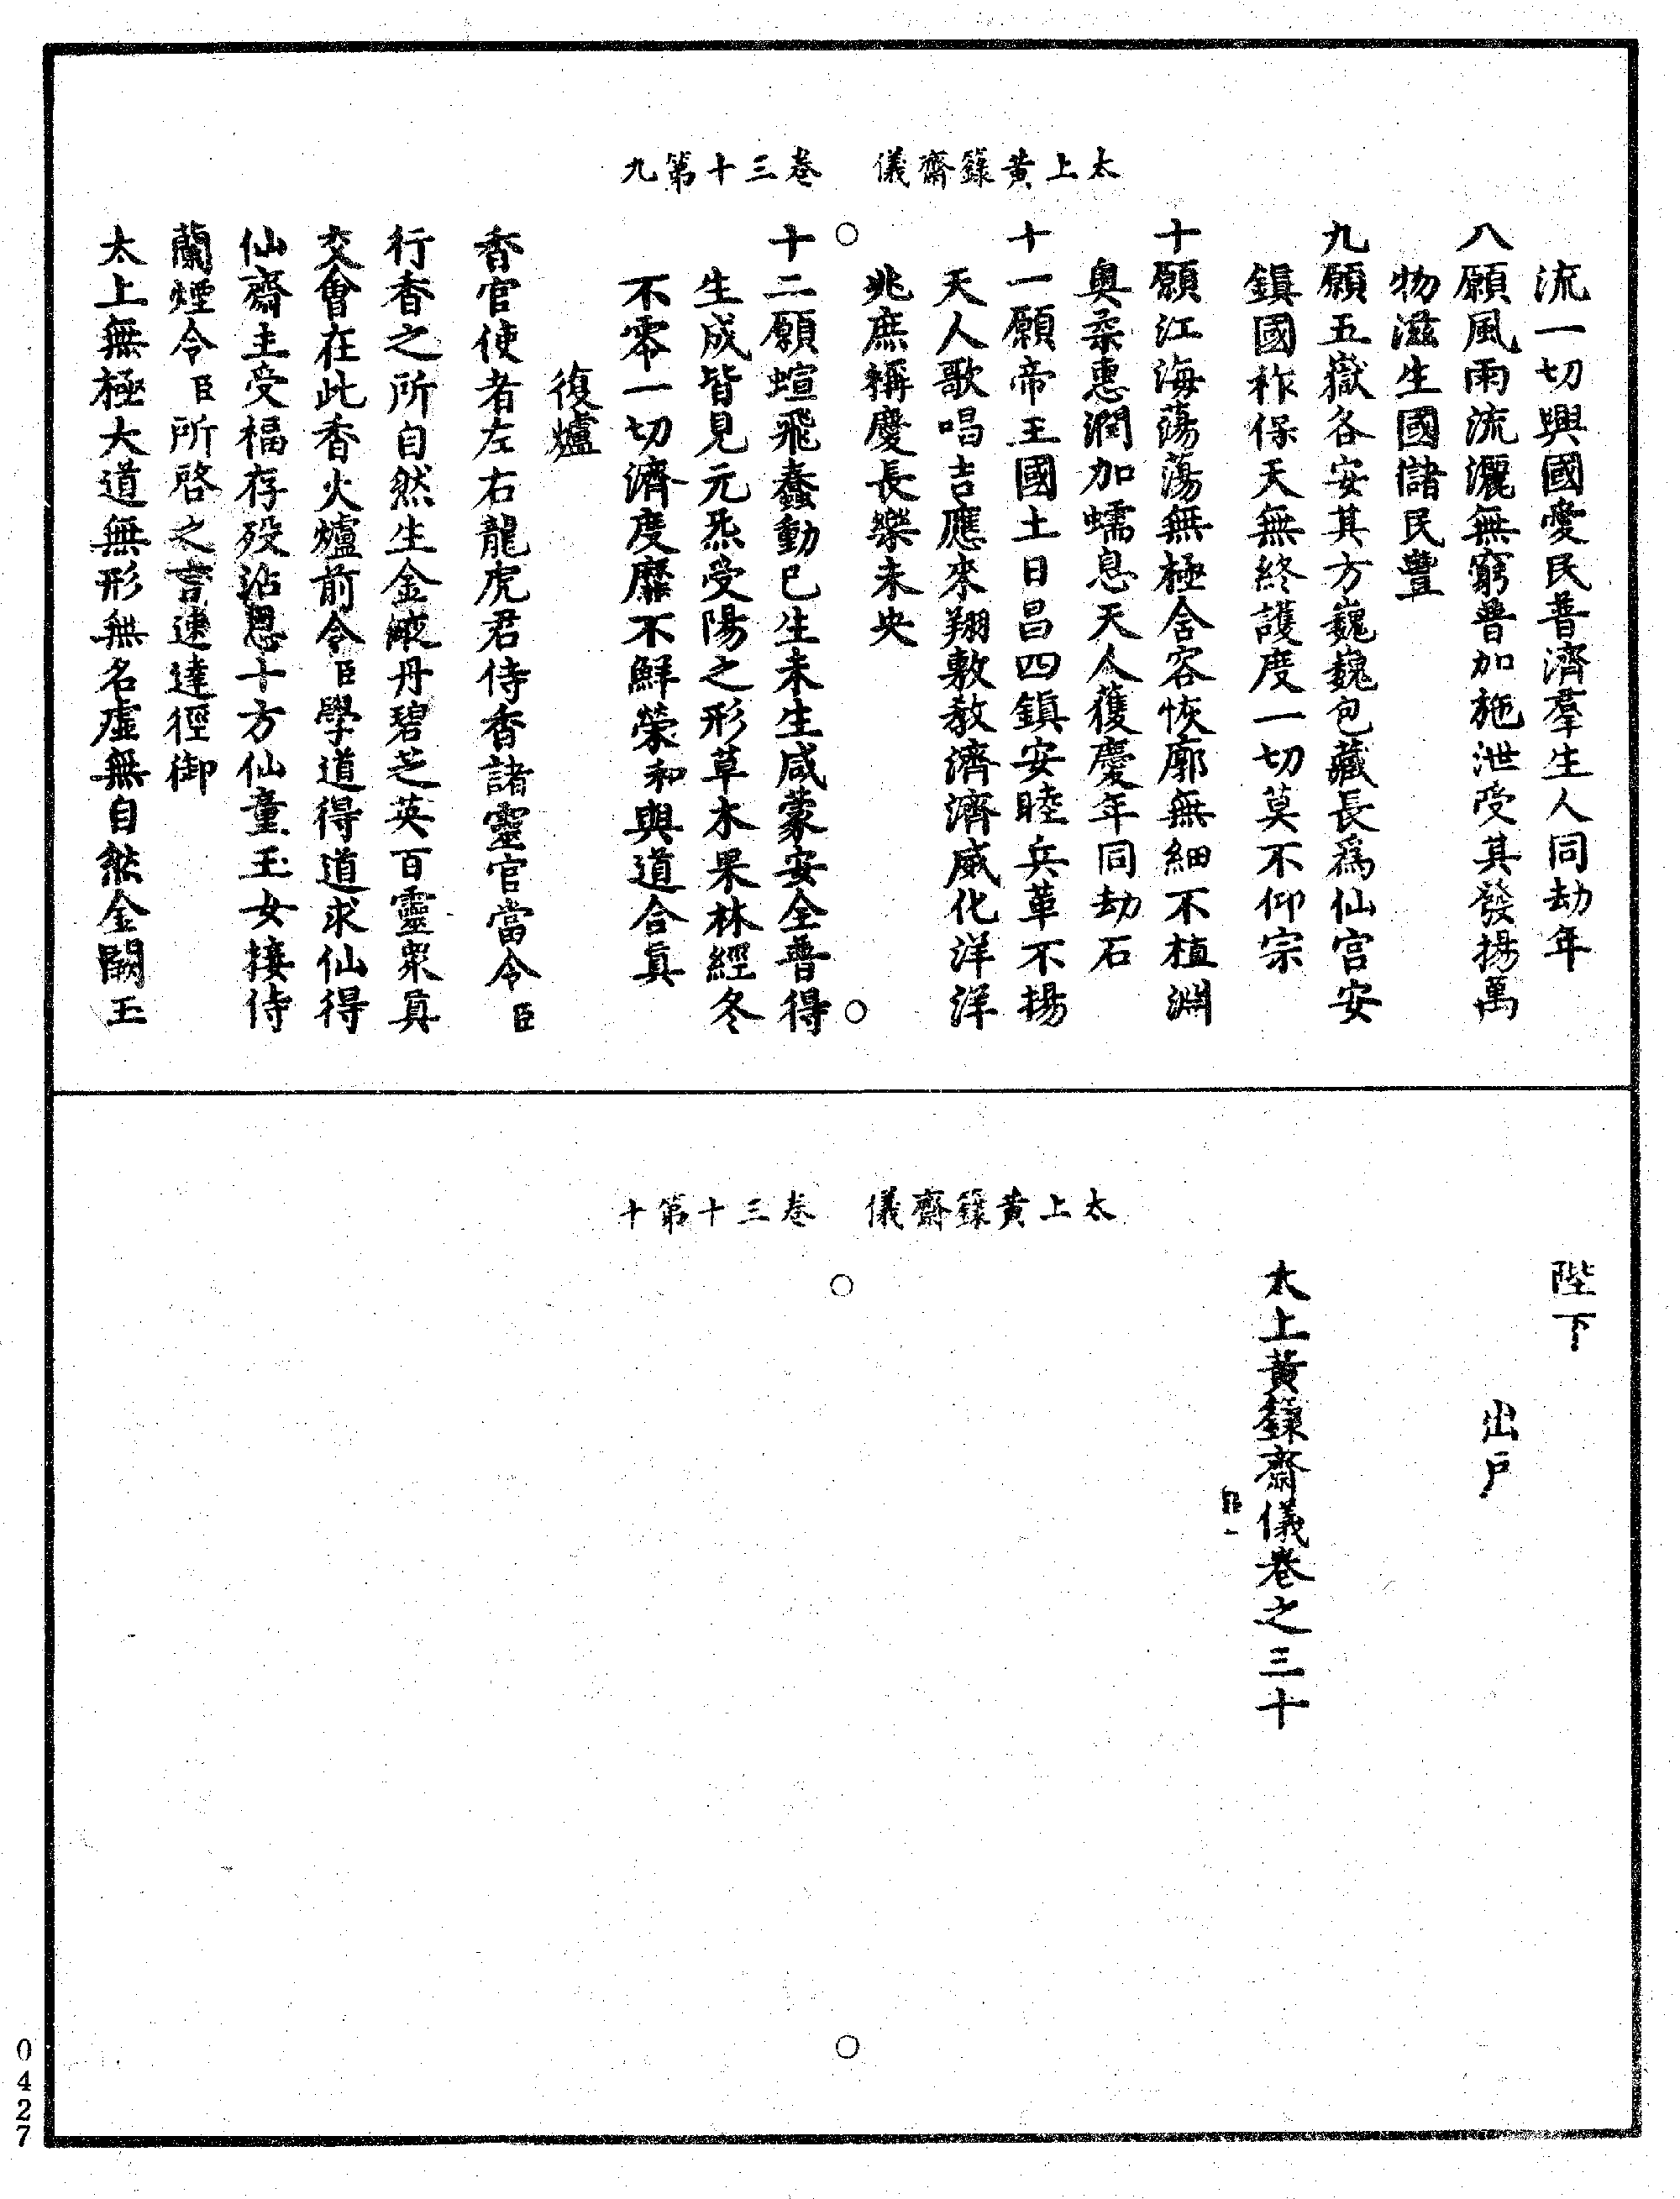 太上黃籙齋儀　卷三十第九
流一切興國愛民普濟羣生人同劫年
八願風雨流灑無窮普加施泄受其發揚萬
物滋生國儲民豐
九願五嶽各安其方巍巍包藏長爲仙宮安
鎮國祚保天無終護度一切莫不仰宗
十願江海蕩蕩無極含容恢廓無細不植淵
奥柔惠潤加蠕息天人獲慶年同劫石
十一願帝王國土日昌四鎮安睦兵革不揚
天人歌唱吉應來翔敷教濟濟威化洋洋
兆庶稱慶長樂未央
十二願蝖飛蠢動已生未生咸蒙安全普得
生成皆見元炁受陽之形草木果林經冬
不零一切濟度靡不鮮榮和與道合眞
復爐
香官使者左右龍虎君侍香諸靈官當令臣
行香之所自然生金液丹碧芝英百靈衆眞
交會在此香火爐前令臣學道得道求仙得
仙齋主受福存歿沾恩十方仙童玉女接侍
蘭煙令臣所啓之言速達徑御
太上無極大道無形無名虛無自然金闕玉
太上黃籙齋儀　卷三十第十
陛下
出戶
太上黃籙齋儀卷之三十
0427